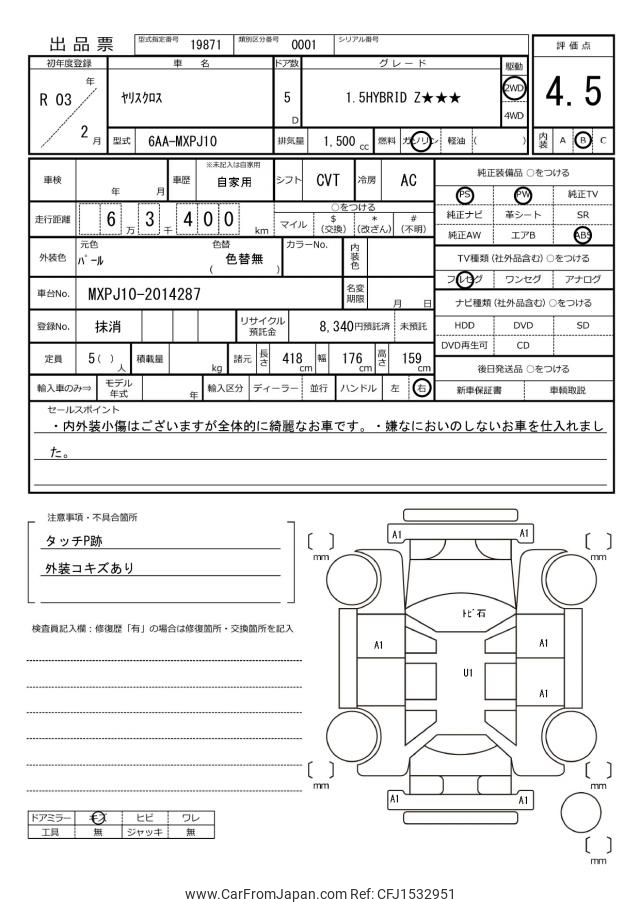 出品票
型式指定番号 19871 類別区分番号 0001 シリアル番号
評価点
4.5
内装 A B C
初年度登録 車名 ドア数 グレード 駆動
R 03 年 2 月
ヤリスクロス
5 D
1.5HYBRID Z★★★
2WD
4WD
型式 6AA-MXPJ10 排気量 1,500 cc 燃料 ガソリン 軽油 ( )
車検 年 月 車歴 ※未記入は自家用 自家用 シフト CVT 冷房 AC
走行距離 6 3 万 千 4 0 0 km
○をつける
マイル $(交換) *(改ざん) #(不明)
外装色 元色 パール 色替 ( 色替無 ) カラーNo. 内装色
車台No. MXPJ10-2014287 名変期限 月 日
登録No. 抹消 リサイクル預託金 8,340円預託済 未預託
定員 5( )人 積載量 kg 諸元 長さ 418 cm 幅 176 cm 高さ 159 cm
輸入車のみ⇒ モデル年式 年 輸入区分 ディーラー 並行 ハンドル 左 右
純正装備品 ○をつける
PS PW 純正TV
純正ナビ 革シート SR
純正AW エアB ABS
TV種類(社外品含む) ○をつける
フルセグ ワンセグ アナログ
ナビ種類(社外品含む) ○をつける
HDD DVD SD
DVD再生可 CD
後日発送品 ○をつける
新車保証書 車輌取説
セールスポイント
・内外装小傷はございますが全体的に綺麗なお車です。・嫌なにおいのしないお車を仕入れまし
た。
注意事項・不具合箇所
タッチP跡
外装コキズあり
検査員記入欄：修復歴「有」の場合は修復箇所・交換箇所を記入
ドアミラー キズ ヒビ ワレ
工具 無 ジャッキ 無
A1 A1
mm mm
トビ石
A1 A1
U1
A1
mm mm
A1 A1
mm
www.CarFromJapan.com Ref: CFJ1532951